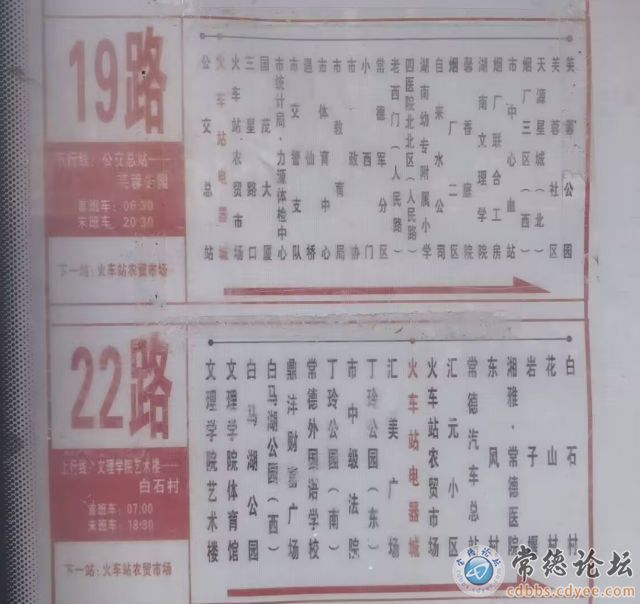 19路
下行线：公交总站——
芙蓉公园
首班车：06:30
末班车：20:30
下一站：火车站农贸市场
公交总站
火车站电器城
火车站·农贸市场
三星路口
国茂大厦
市统计局·力源体检中心
市交警支队
遇仙桥
市体育中心
市教育局
市政协
小西门
常德军分区
老西门(人民路)
四医院北北区(人民路)
湖南幼专附属小学
自来水公司
烟厂二区
馨香庭院
湖南文理学院
烟厂联合工房
市中心血站
烟厂三区(西)
天源星城(北)
芙蓉社区
芙蓉公园
22路
上行线：文理学院艺术楼——
白石村
首班车：07:00
末班车：18:30
下一站：火车站农贸市场
文理学院艺术楼
文理学院体育馆
白马湖公园
白马湖公园(西)
鼎沣财富广场
常德外国语学校
丁玲公园(南)
市中级法院
丁玲公园(东)
汇美广场
火车站电器城
火车站农贸市场
汇元小区
常德汽车总站
东风村
湘雅·常德医院
岩子堰
花山村
白石村
常德论坛
cdbbs.cdyee.com